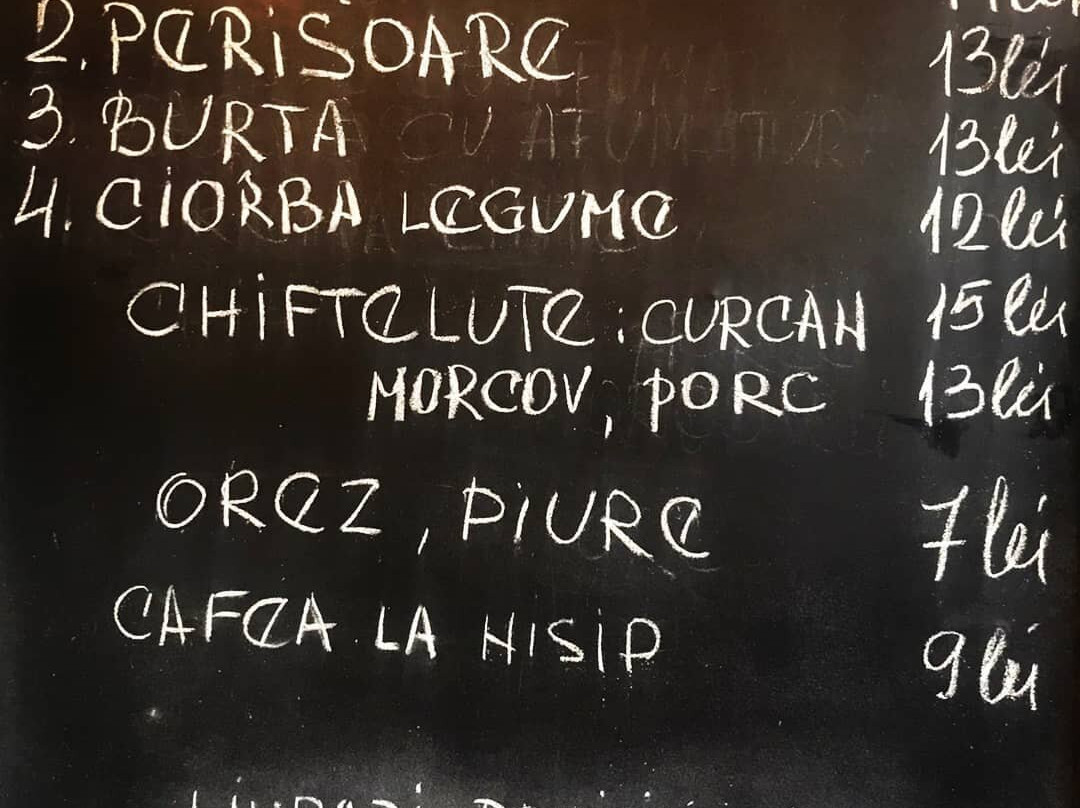 2. PERiSOARE 13 lei
3. BURTA 13 lei
4. CIORBA LEGUME 12 lei
CHiFTELUTE : CURCAN 15 lei
MORCOV, PORC 13 lei
OREZ, PiURE 7 lei
CAFEA LA NISiP 9 lei